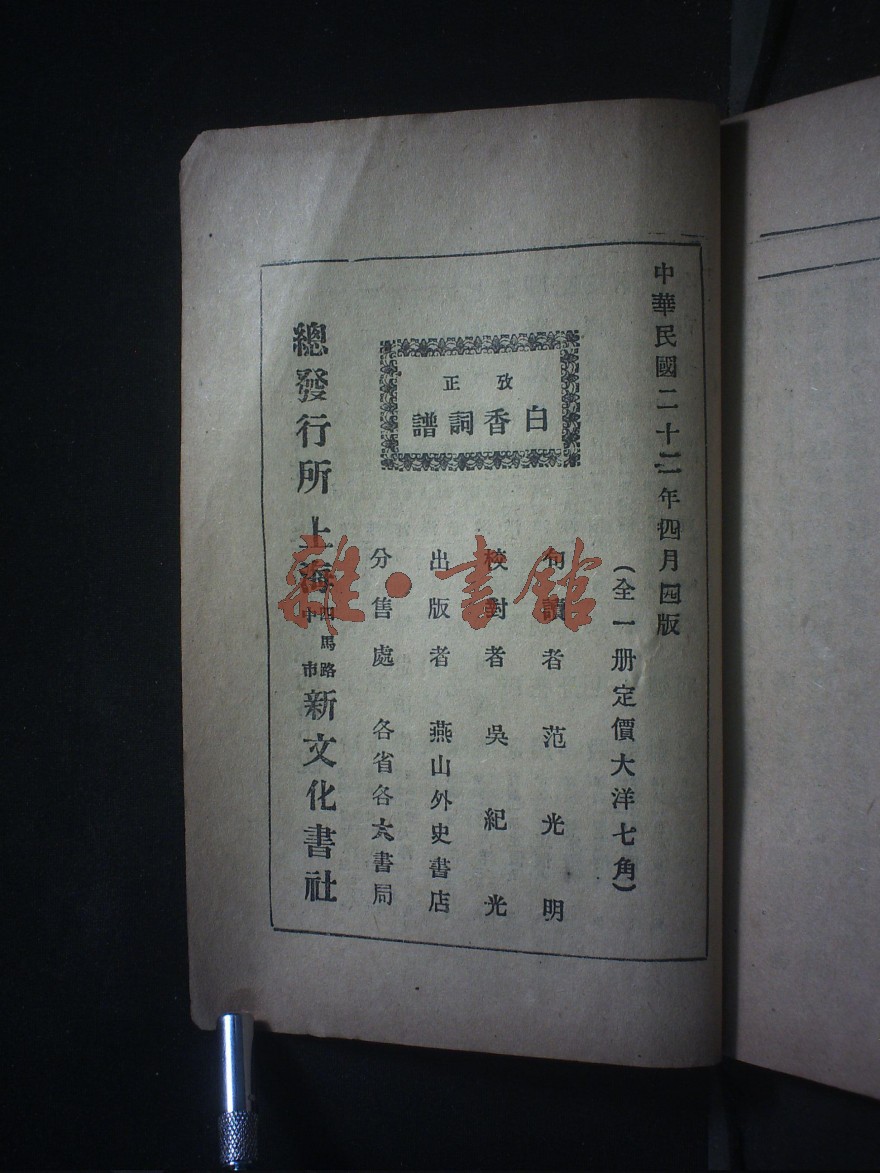 中華民國二十三年四月四版
(全一册定價大洋七角)
攷正
白香詞譜
句讀者 范光明
校對者 吳紀光
出版者 燕山外史書店
分售處 各省各大書局
總發行所 上海四馬路中市新文化書社
雜·書館